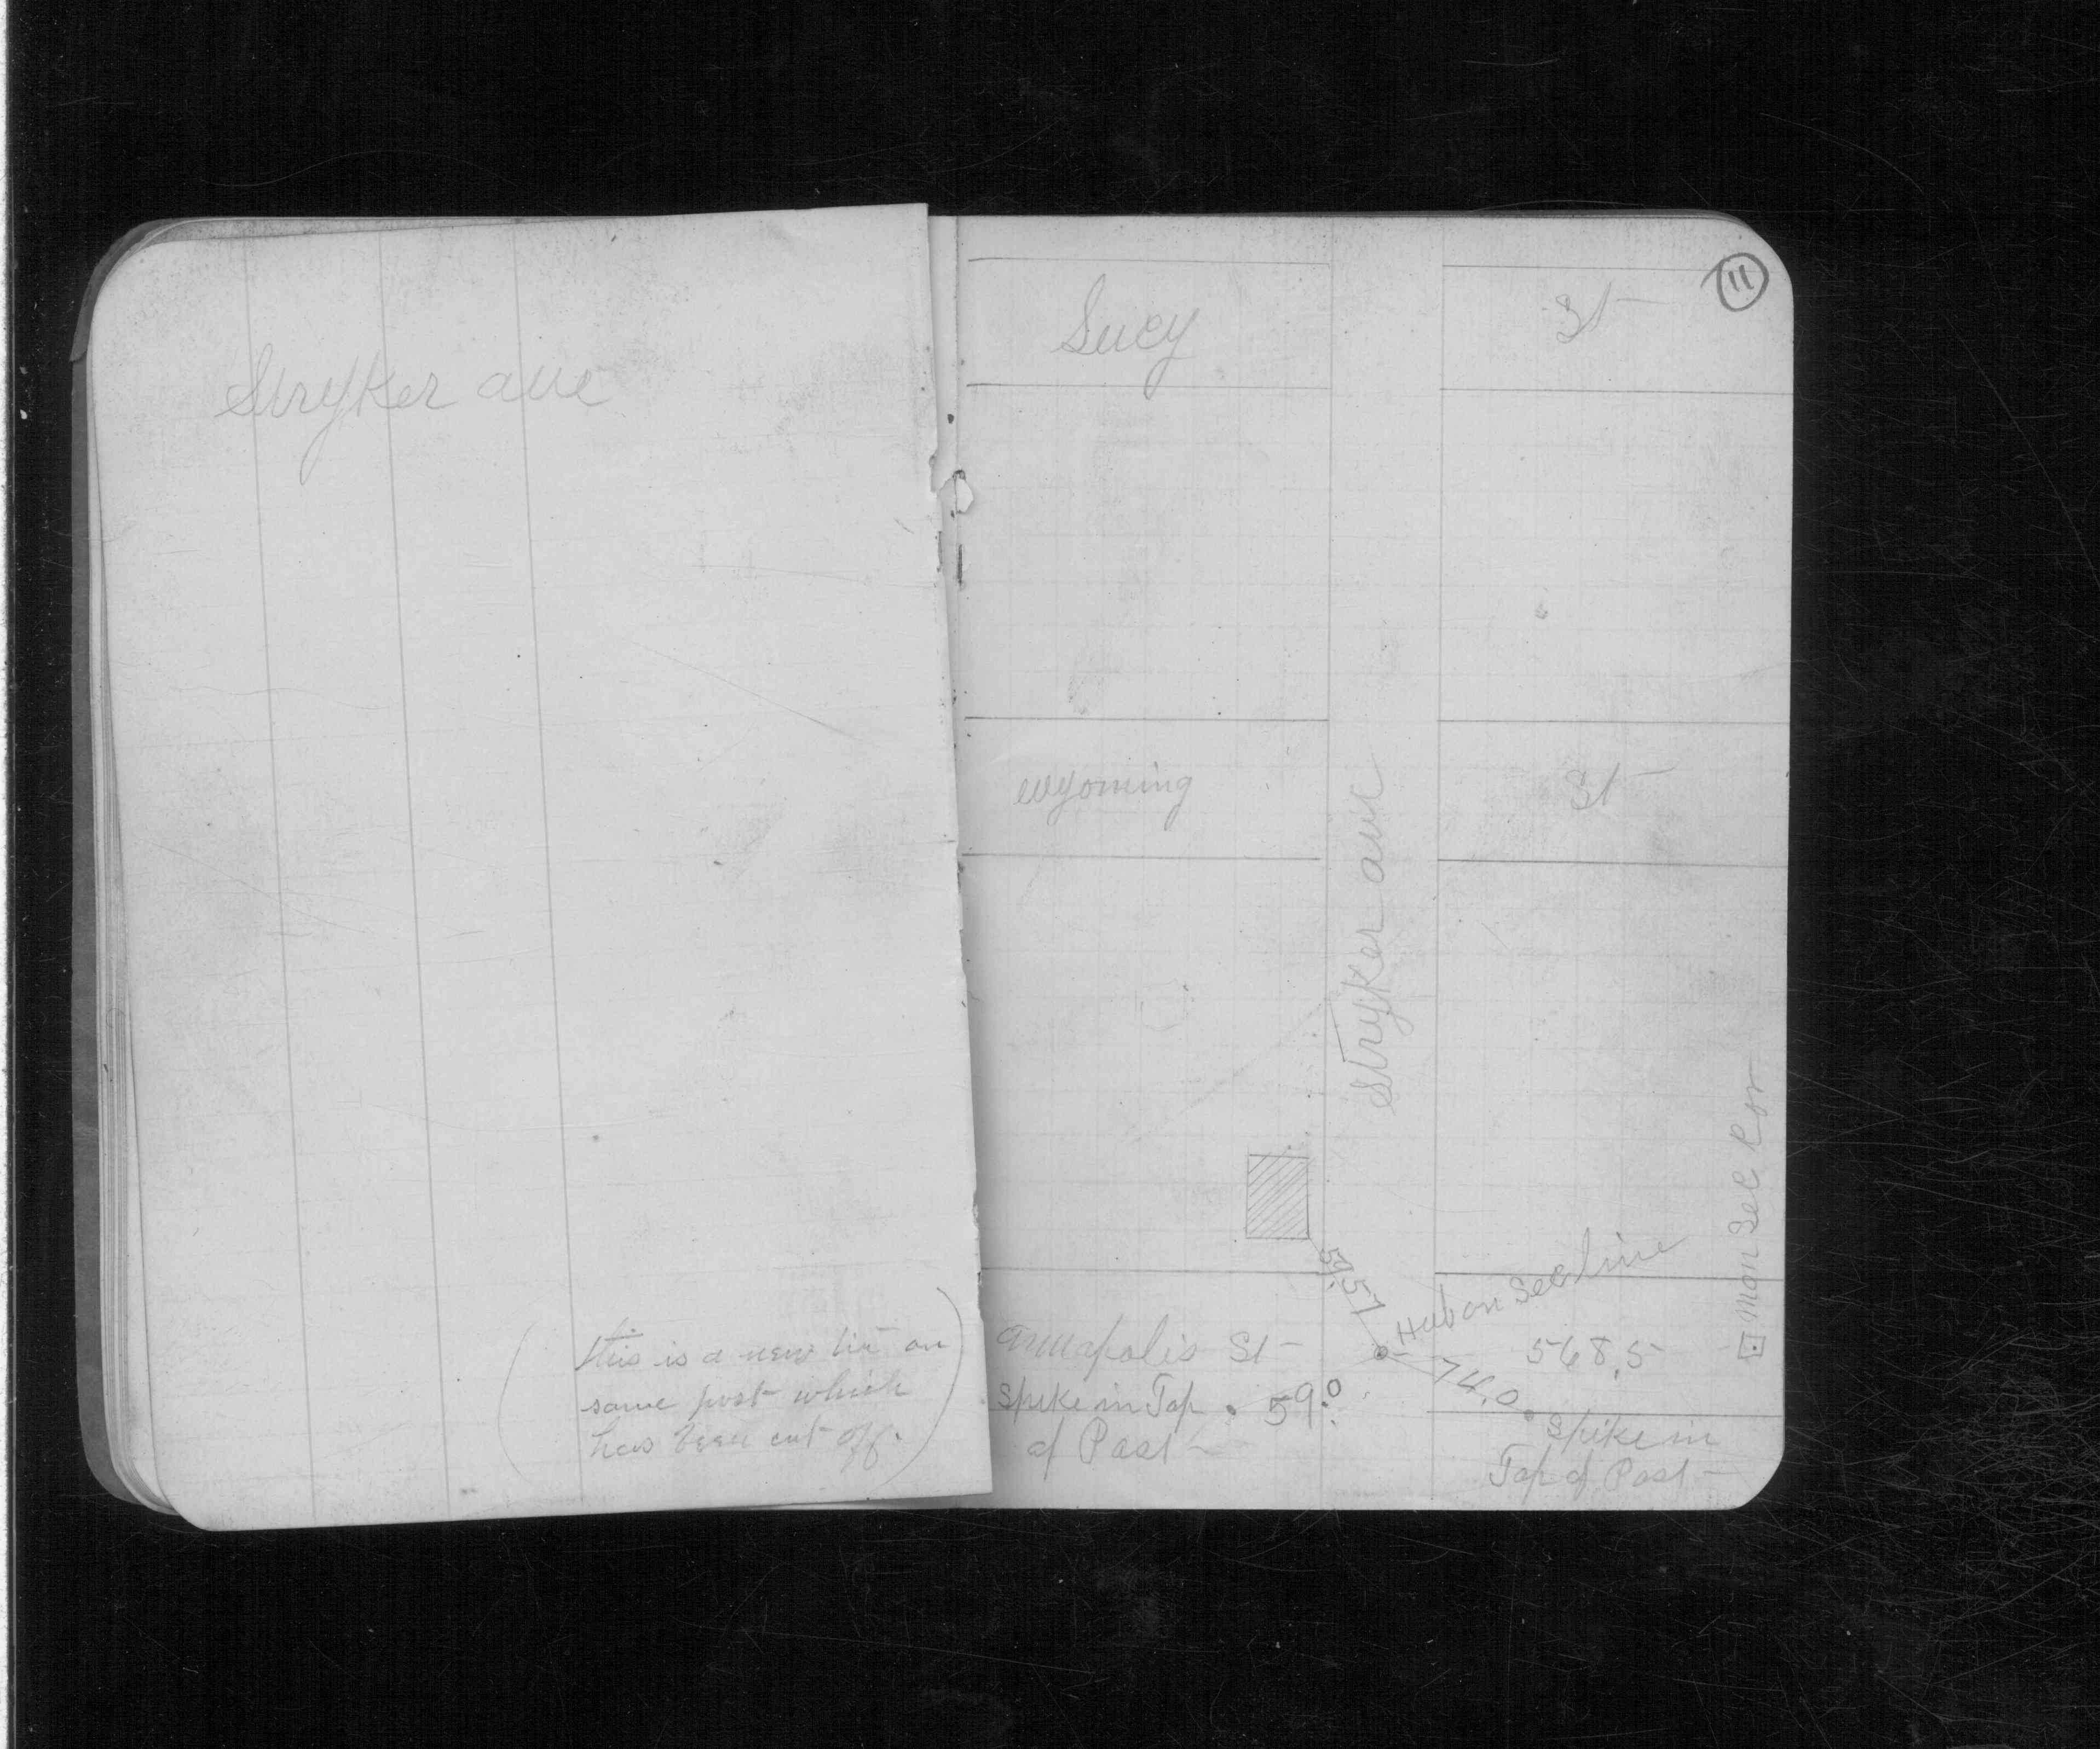 Stryker ave
(this is a new tie on
same post which
has been cut off.)
11
Lucy St
wyoming St
Stryker ave
Mon Sec Cor
Hub on Sec line
Annapolis St
568.5
74.0
59.0
spike in Top
of Post
Spike in
Top of Post